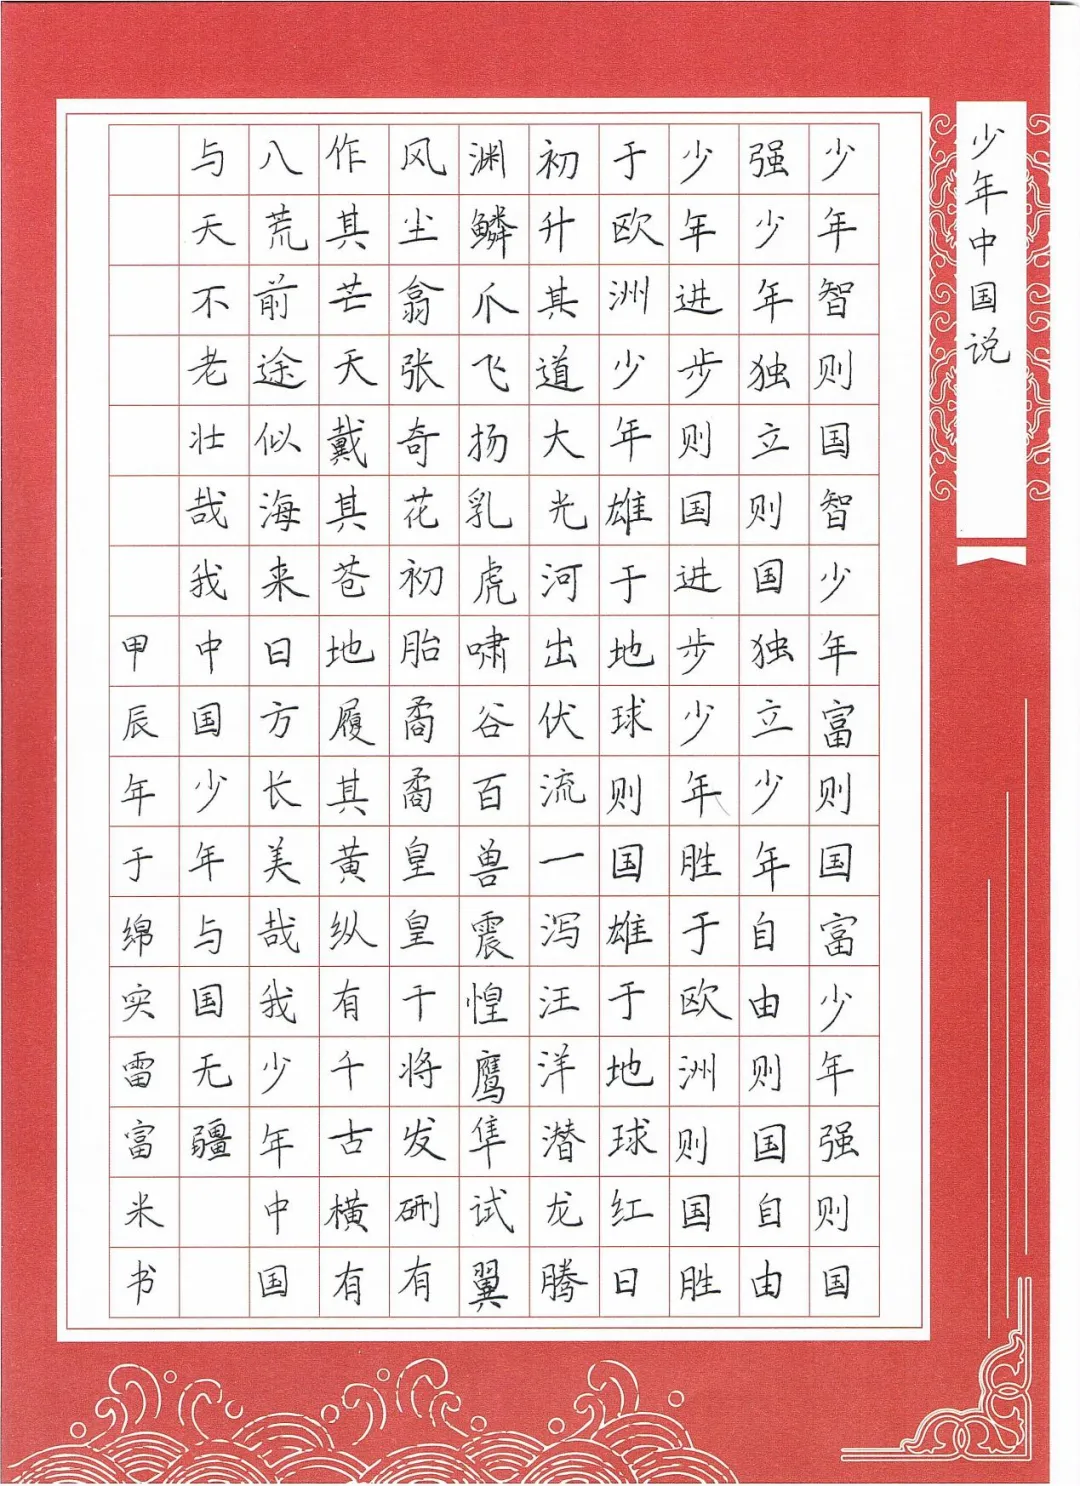 少年中国说
少年智则国智少年富则国富少年强则国
强少年独立则国独立少年自由则国自由
少年进步则国进步少年胜于欧洲则国胜
于欧洲少年雄于地球则国雄于地球红日
初升其道大光河出伏流一泻汪洋潜龙腾
渊鳞爪飞扬乳虎啸谷百兽震惶鹰隼试翼
风尘翕张奇花初胎矞矞皇皇干将发硎有
作其芒天戴其苍地履其黄纵有千古横有
八荒前途似海来日方长美哉我少年中国
与天不老壮哉我中国少年与国无疆
甲辰年于绵实雷富米书